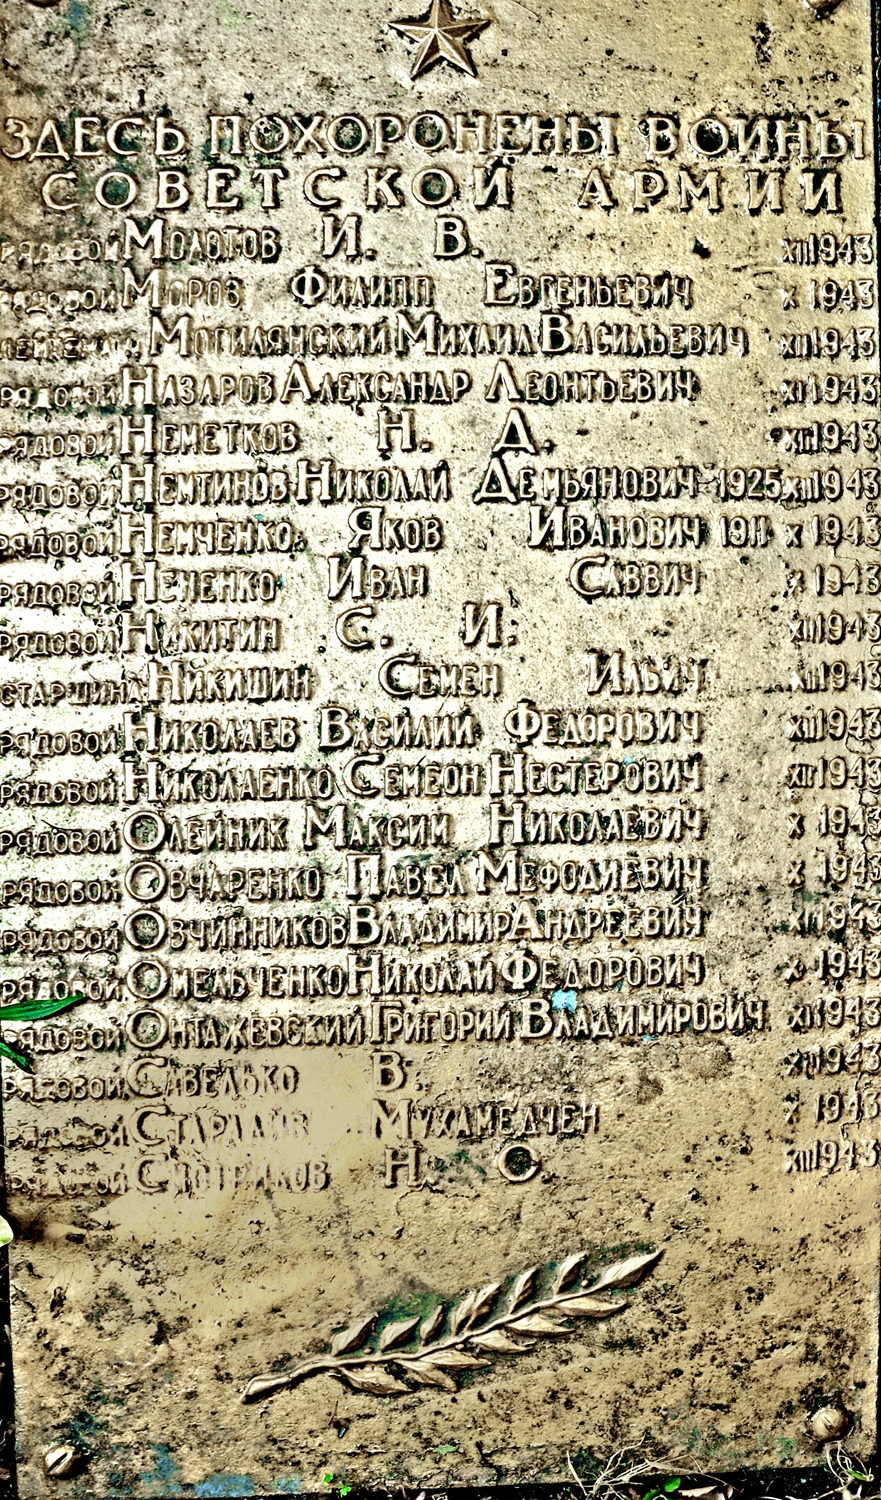 ЗДЕСЬ ПОХОРОНЕНЫ ВОИНЫ
СОВЕТСКОЙ АРМИИ
РЯДОВОЙ МОЛОТОВ И. В. XII 1943
РЯДОВОЙ МОРОЗ ФИЛИПП ЕВГЕНЬЕВИЧ X 1943
МОГИЛЯНСКИЙ МИХАИЛ ВАСИЛЬЕВИЧ XII 1943
РЯДОВОЙ НАЗАРОВ АЛЕКСАНДР ЛЕОНТЬЕВИЧ XII 1943
РЯДОВОЙ НЕМЕТКОВ Н. Д. XII 1943
РЯДОВОЙ НЕМТИНОВ НИКОЛАЙ ДЕМЬЯНОВИЧ 1925 XII 1943
РЯДОВОЙ НЕМЧЕНКО ЯКОВ ИВАНОВИЧ 1911 X 1943
РЯДОВОЙ НЕНЕНКО ИВАН САВВИЧ X 1943
РЯДОВОЙ НИКИТИН С. И. XII 1943
СТАРШИНА НИКИШИН СЕМЕН ИЛЬИЧ XII 1943
РЯДОВОЙ НИКОЛАЕВ ВАСИЛИЙ ФЕДОРОВИЧ XII 1943
РЯДОВОЙ НИКОЛАЕНКО СЕМЕОН НЕСТЕРОВИЧ XII 1943
РЯДОВОЙ ОЛЕЙНИК МАКСИМ НИКОЛАЕВИЧ X 1943
РЯДОВОЙ ОВЧАРЕНКО ПАВЕЛ МЕФОДИЕВИЧ X 1943
РЯДОВОЙ ОВЧИННИКОВ ВЛАДИМИР АНДРЕЕВИЧ XII 1943
РЯДОВОЙ ОМЕЛЬЧЕНКО НИКОЛАЙ ФЕДОРОВИЧ X 1943
РЯДОВОЙ ОНТАЖЕВСКИЙ ГРИГОРИЙ ВЛАДИМИРОВИЧ XII 1943
РЯДОВОЙ САВЕЛЬКО В. XII 1943
РЯДОВОЙ МУХАМЕДЧЕН X 1943
РЯДОВОЙ Н. О. XII 1943